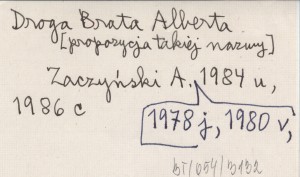 Droga Brata Alberta
[propozycja takiej nazwy]
Zaczyński A. 1984 u,
1986 c
1978 j, 1980 v,
BT/054/3132